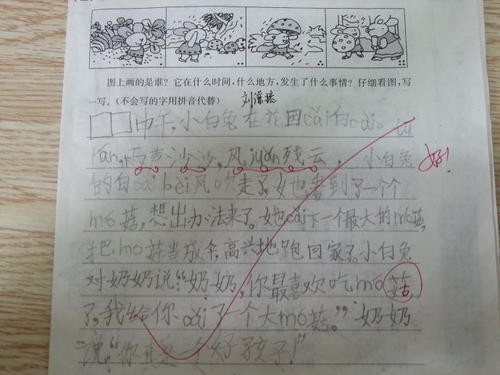 图上画的是谁？它在什么时间，什么地方，发生了什么事情？仔细看图，写
一写。(不会写的字用拼音代替)
中午，小白兔在花园cǎi白cài。tū
rán，雨声沙沙，风juǎn残云，小白兔
的白cài bèi风吹走了，她看到了一个个
mó菇，想出办法来了。她cǎi下一个最大的mó菇，
把mó菇当成伞，高兴地跑回家了。小白兔
对奶奶说：“奶奶，你最喜欢吃mó菇
了，我给你cǎi了一个大mó菇。”奶奶
说：“你真是一个好孩子！”
好！